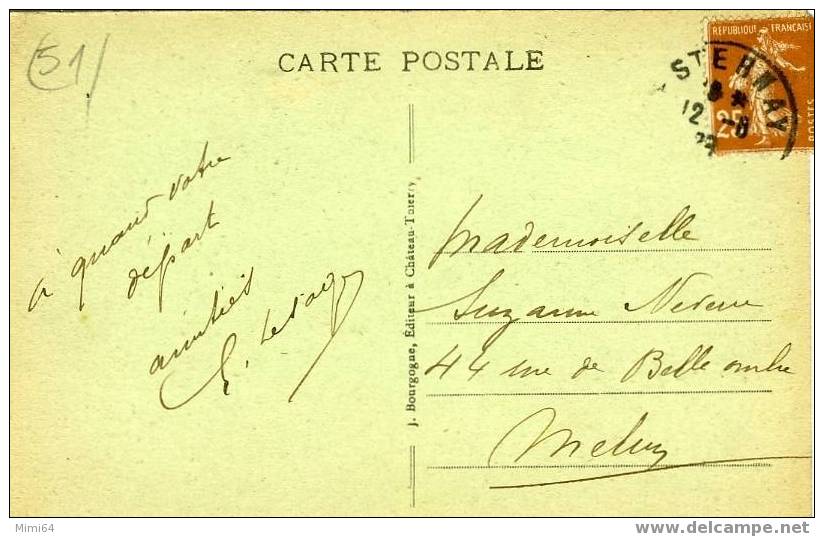 51
CARTE POSTALE
REPUBLIQUE FRANÇAISE
25
POSTES
STERNAY
12 -8
à quand votre
départ
amitiés
J. Bourgogne, Éditeur à Château-Thierry
Mademoiselle
Suzanne
44 rue de Belle ombre
Melun
Mimi64
delcampe.net